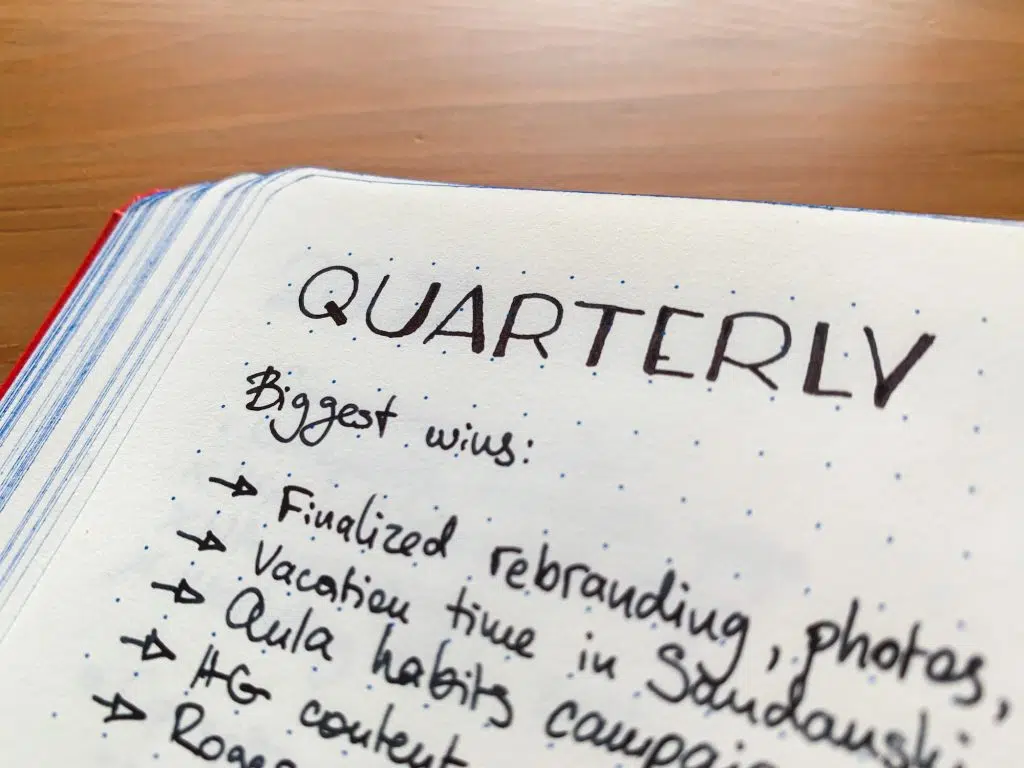 QUARTERLY
Biggest wins:
→ Finalized rebranding, photos,
→ Vacation time in Sandanski
→ Aula habits
→ HG content
→